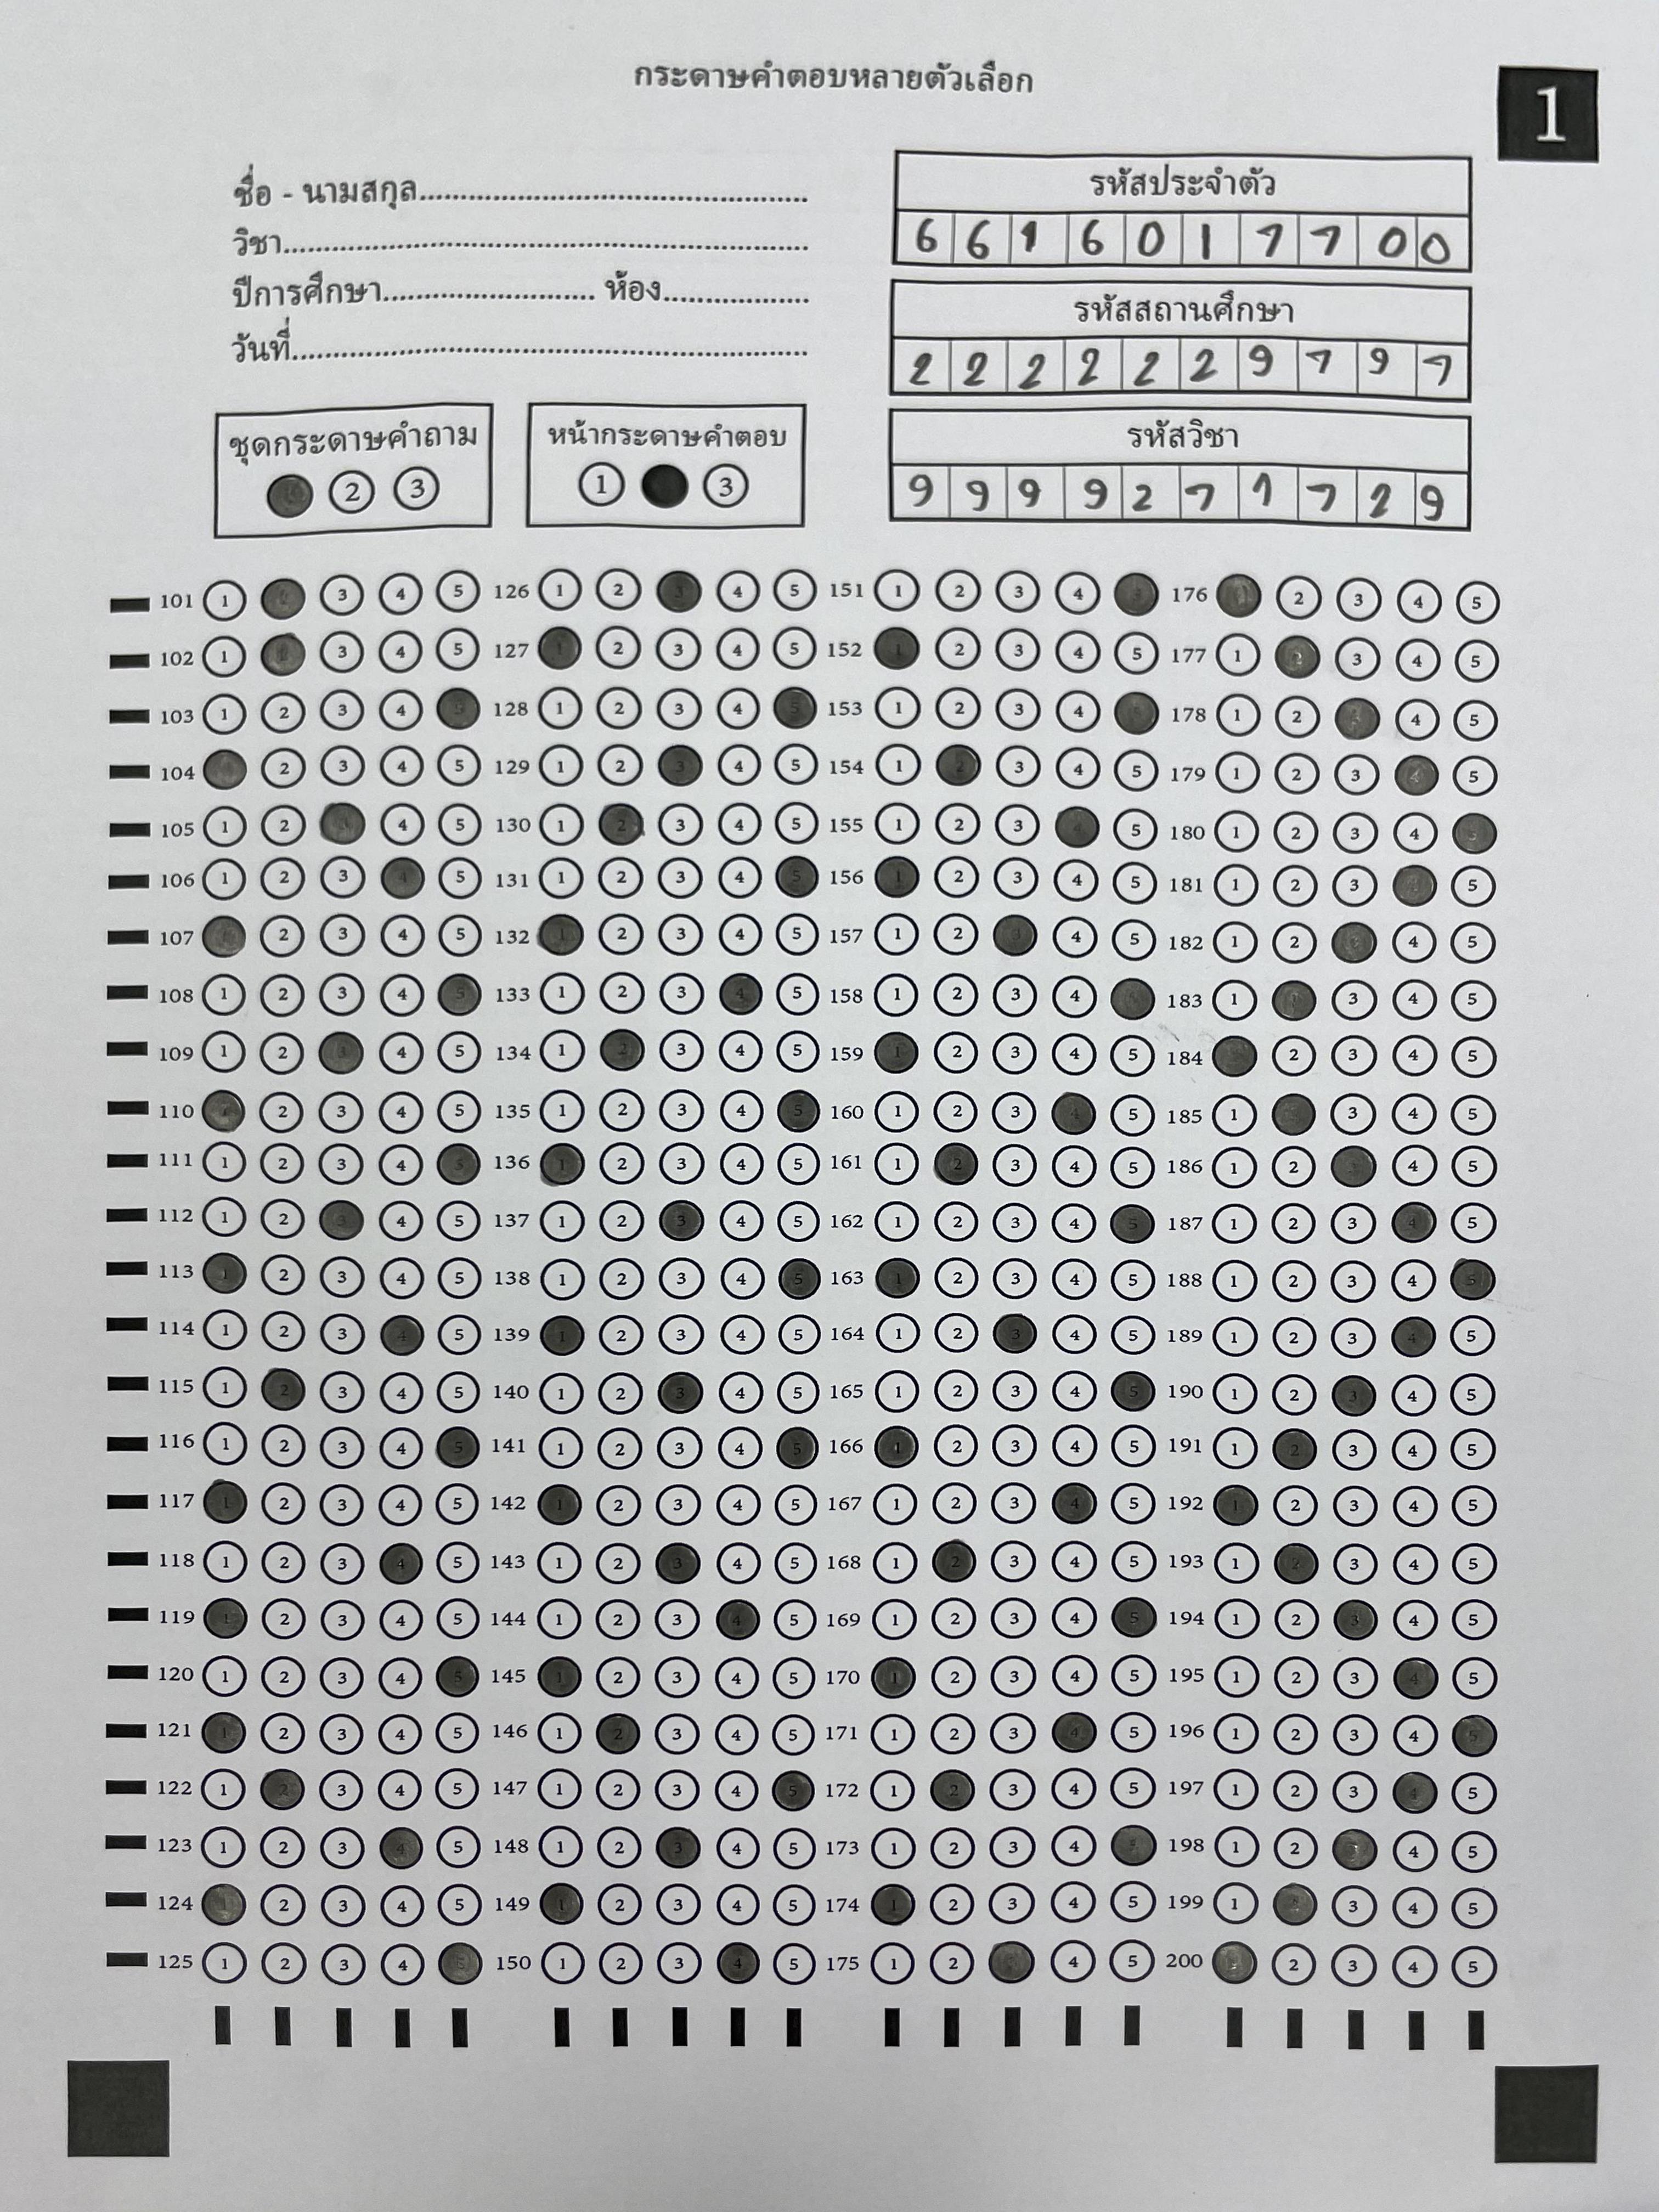 กระดาษคำตอบหลายตัวเลือก
1
ชื่อ - นามสกุล
วิชา
ปีการศึกษา ห้อง
วันที่
รหัสประจำตัว
6 6 1 6 0 1 7 7 0 0
รหัสสถานศึกษา
2 2 2 2 2 2 9 7 9 7
รหัสวิชา
9 9 9 9 2 7 1 7 2 9
ชุดกระดาษคำถาม
2 3
หน้ากระดาษคำตอบ
1 3
101 1 2 3 4 5 126 1 2 3 4 5 151 1 2 3 4 5 176 1 2 3 4 5
102 1 2 3 4 5 127 1 2 3 4 5 152 1 2 3 4 5 177 1 2 3 4 5
103 1 2 3 4 5 128 1 2 3 4 5 153 1 2 3 4 5 178 1 2 3 4 5
104 1 2 3 4 5 129 1 2 3 4 5 154 1 2 3 4 5 179 1 2 3 4 5
105 1 2 3 4 5 130 1 2 3 4 5 155 1 2 3 4 5 180 1 2 3 4 5
106 1 2 3 4 5 131 1 2 3 4 5 156 1 2 3 4 5 181 1 2 3 4 5
107 1 2 3 4 5 132 1 2 3 4 5 157 1 2 3 4 5 182 1 2 3 4 5
108 1 2 3 4 5 133 1 2 3 4 5 158 1 2 3 4 5 183 1 2 3 4 5
109 1 2 3 4 5 134 1 2 3 4 5 159 1 2 3 4 5 184 1 2 3 4 5
110 1 2 3 4 5 135 1 2 3 4 5 160 1 2 3 4 5 185 1 2 3 4 5
111 1 2 3 4 5 136 1 2 3 4 5 161 1 2 3 4 5 186 1 2 3 4 5
112 1 2 3 4 5 137 1 2 3 4 5 162 1 2 3 4 5 187 1 2 3 4 5
113 1 2 3 4 5 138 1 2 3 4 5 163 1 2 3 4 5 188 1 2 3 4 5
114 1 2 3 4 5 139 1 2 3 4 5 164 1 2 3 4 5 189 1 2 3 4 5
115 1 2 3 4 5 140 1 2 3 4 5 165 1 2 3 4 5 190 1 2 3 4 5
116 1 2 3 4 5 141 1 2 3 4 5 166 1 2 3 4 5 191 1 2 3 4 5
117 1 2 3 4 5 142 1 2 3 4 5 167 1 2 3 4 5 192 1 2 3 4 5
118 1 2 3 4 5 143 1 2 3 4 5 168 1 2 3 4 5 193 1 2 3 4 5
119 1 2 3 4 5 144 1 2 3 4 5 169 1 2 3 4 5 194 1 2 3 4 5
120 1 2 3 4 5 145 1 2 3 4 5 170 1 2 3 4 5 195 1 2 3 4 5
121 1 2 3 4 5 146 1 2 3 4 5 171 1 2 3 4 5 196 1 2 3 4 5
122 1 2 3 4 5 147 1 2 3 4 5 172 1 2 3 4 5 197 1 2 3 4 5
123 1 2 3 4 5 148 1 2 3 4 5 173 1 2 3 4 5 198 1 2 3 4 5
124 1 2 3 4 5 149 1 2 3 4 5 174 1 2 3 4 5 199 1 2 3 4 5
125 1 2 3 4 5 150 1 2 3 4 5 175 1 2 3 4 5 200 1 2 3 4 5